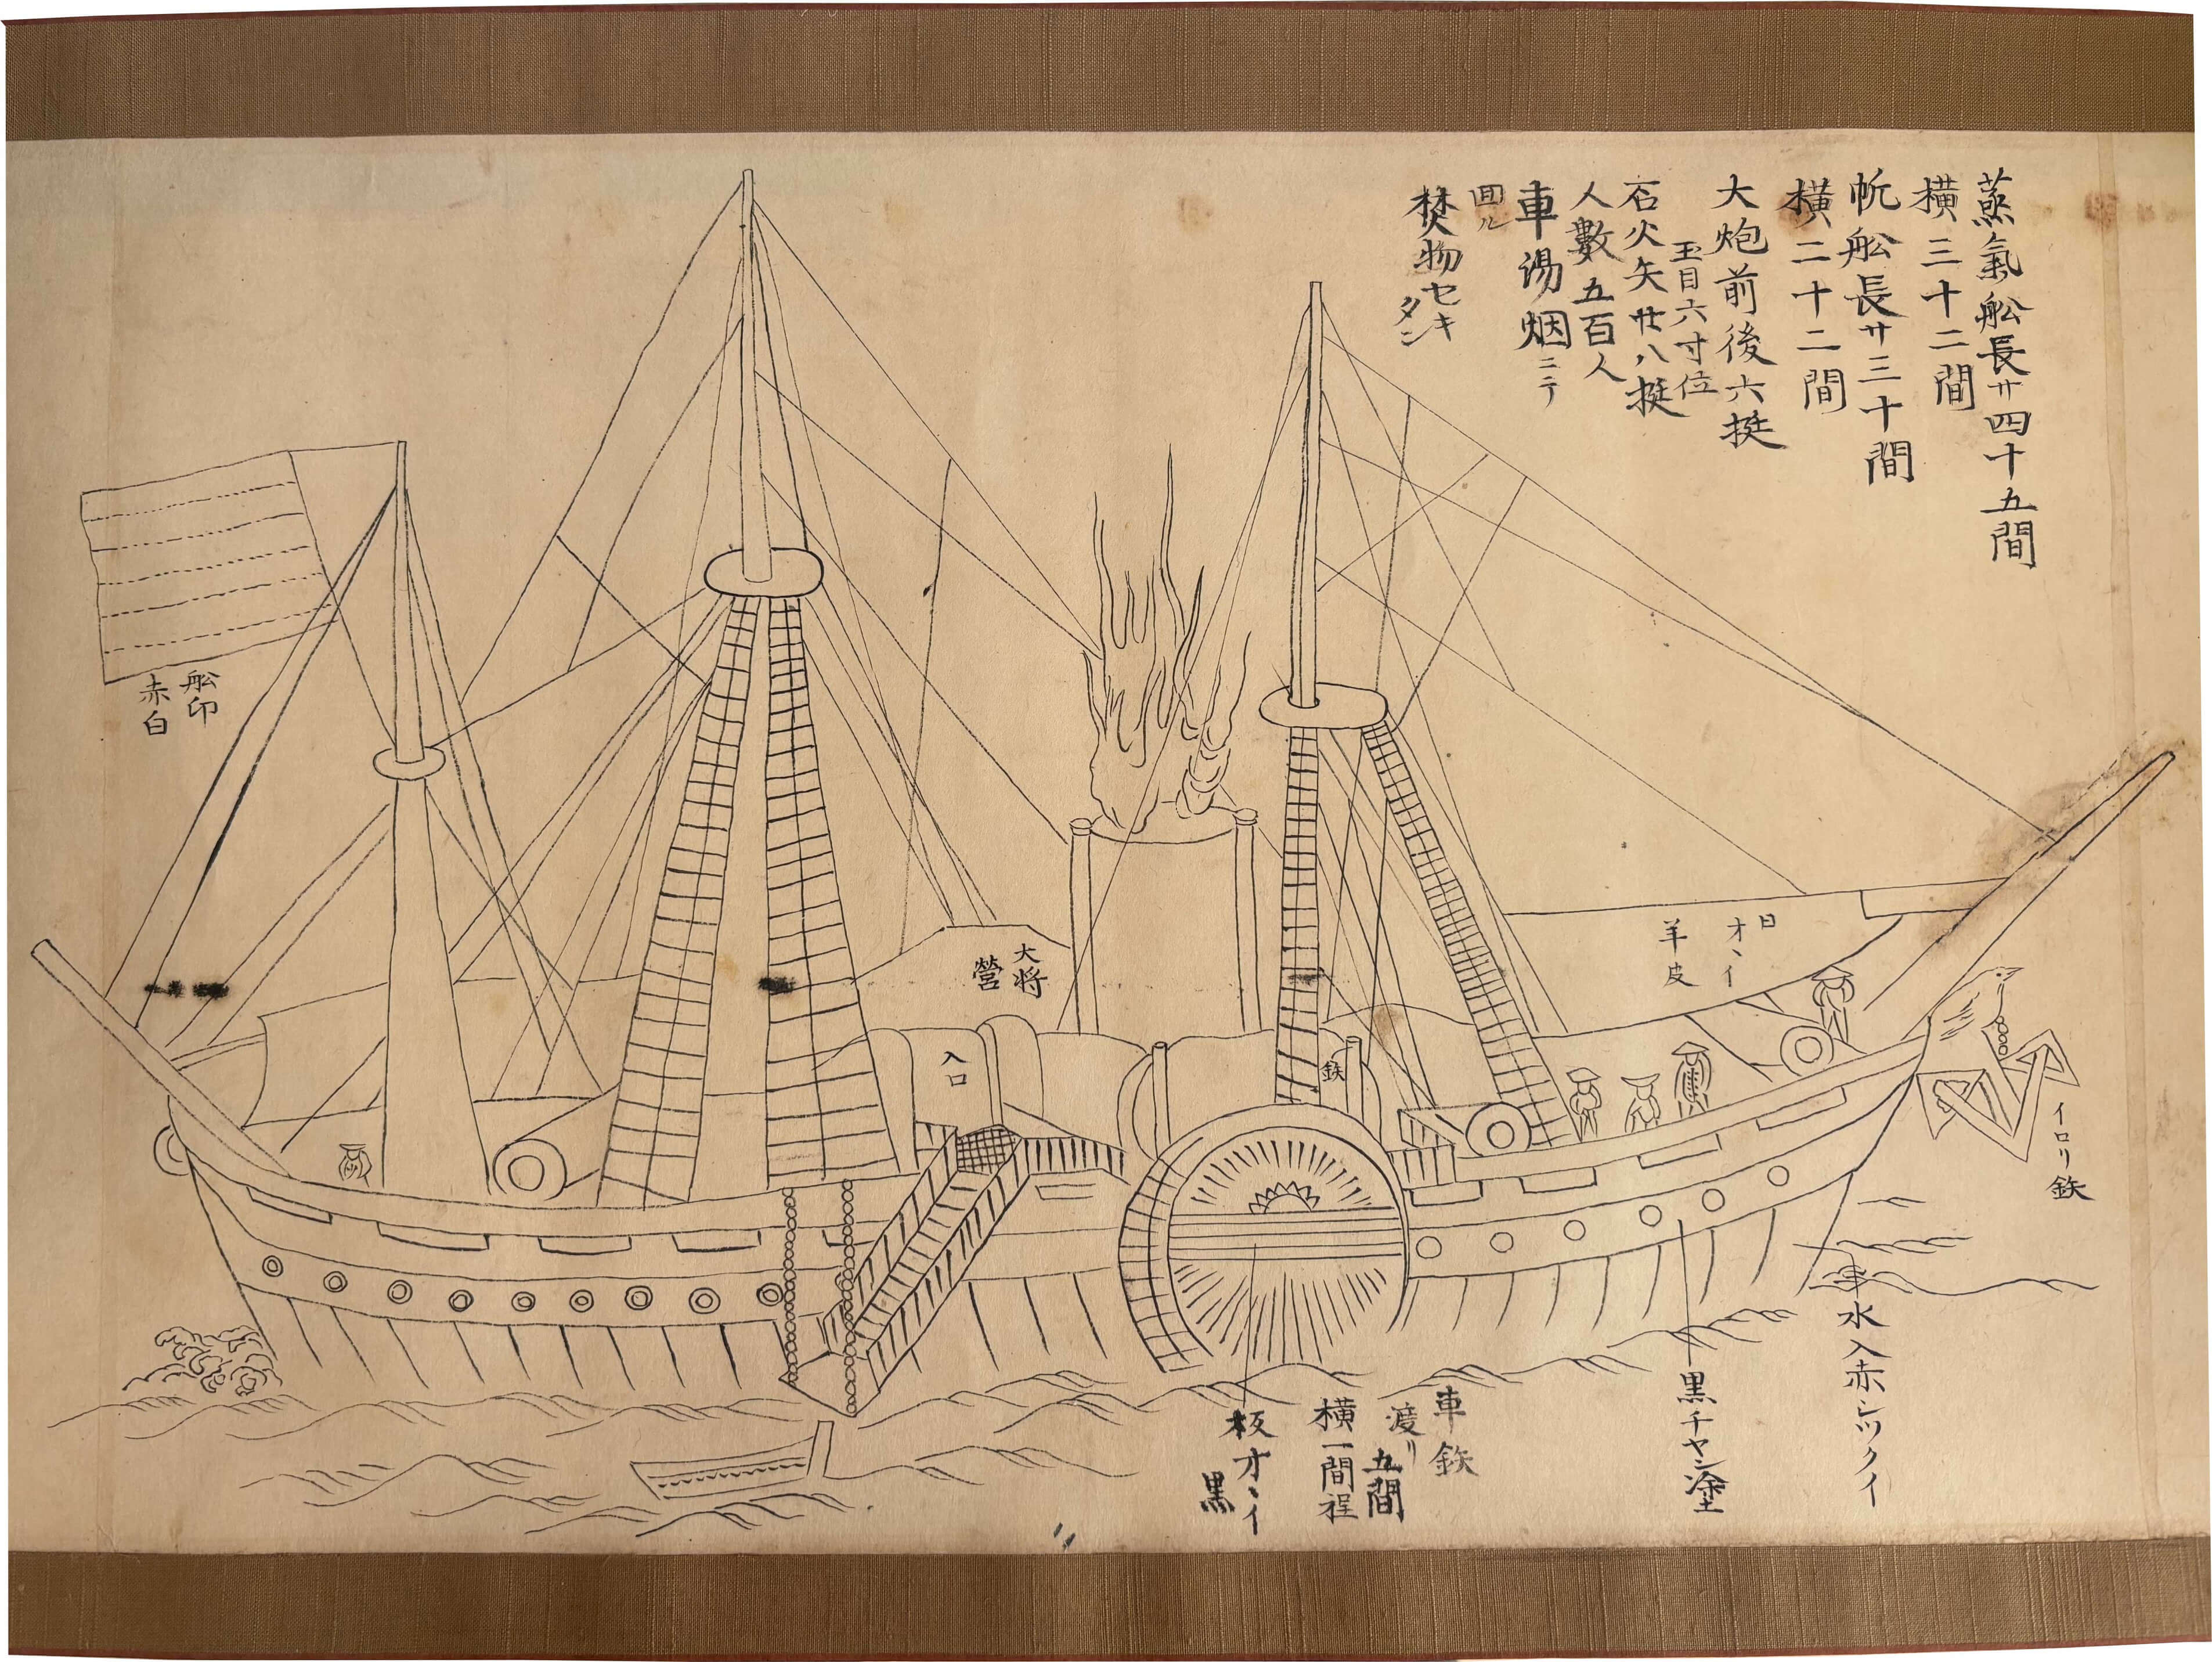 蒸氣舩長サ四十五間
横三十二間
帆舩長サ三十間
横二十二間
大炮前後六挺
玉目六寸位
石火矢廿八挺
人數五百人
車湯烟ニテ
回ル
焚物セキ
タン
日
オヽイ
羊皮
イロリ鉄
大将
營
入口
鉄
舩印
赤白
水入赤シツクイ
黒チヤン塗
車鉄
渡リ
五間
横一間程
板オヽイ
黒